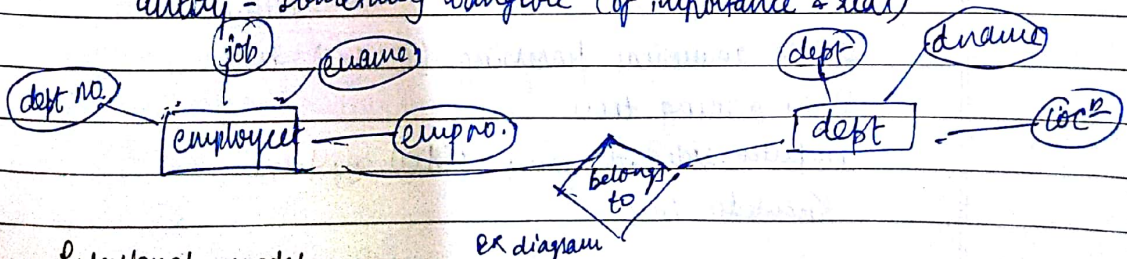 entity - something tangible (of importance & real)
job ename dept dname
dept no.
employees empno. dept locⁿ
belongs
to
ER diagram
Relational model